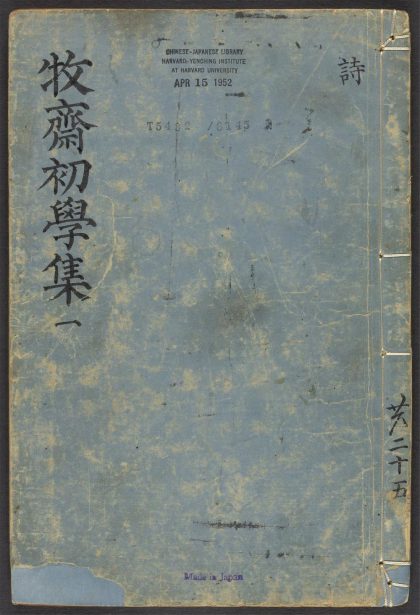 詩
牧齋初學集 一
CHINESE-JAPANESE LIBRARY
HARVARD-YENCHING INSTITUTE
AT HARVARD UNIVERSITY
APR 15 1952
共二十五
Made in Japan